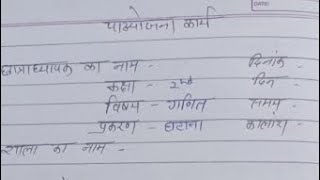 DATE
पाठयोजना कार्य
छात्राध्यापक का नाम - दिनांक
कक्षा - 2nd दिन
विषय - गणित समय
प्रकरण - घटाना कालांश
शाला का नाम -